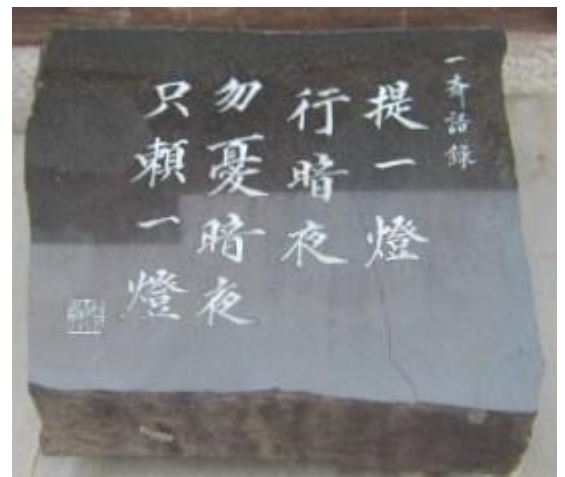 一斉語録
提一燈
行暗夜
勿憂暗夜
只頼一燈